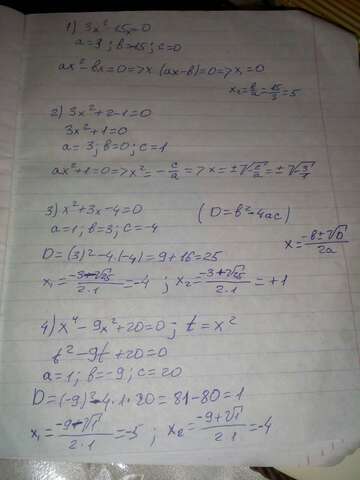 1) 3x²-15x=0
a=3; b=-15; c=0
ax²-bx=0=>x(ax-b)=0=>x₁=0
x₂=b/a=15/3=5
2) 3x²+2-1=0
3x²+1=0
a=3; b=0; c=1
ax²+1=0=>x²=-c/a=>x=±√c/a=±√3/1
3) x²+3x-4=0 (D=b²-4ac)
a=1; b=3; c=-4 x=-b±√D/2a
D=(3)²-4·(-4)=9+16=25
x₁=-3-√25/2·1=-4; x₂=-3+√25/2·1=+1
4) x⁴-9x²+20=0; t=x²
t²-9t+20=0
a=1; b=-9; c=20
D=(-9)²-4·1·20=81-80=1
x₁=-9-√1/2·1=-5; x₂=-9+√1/2·1=-4